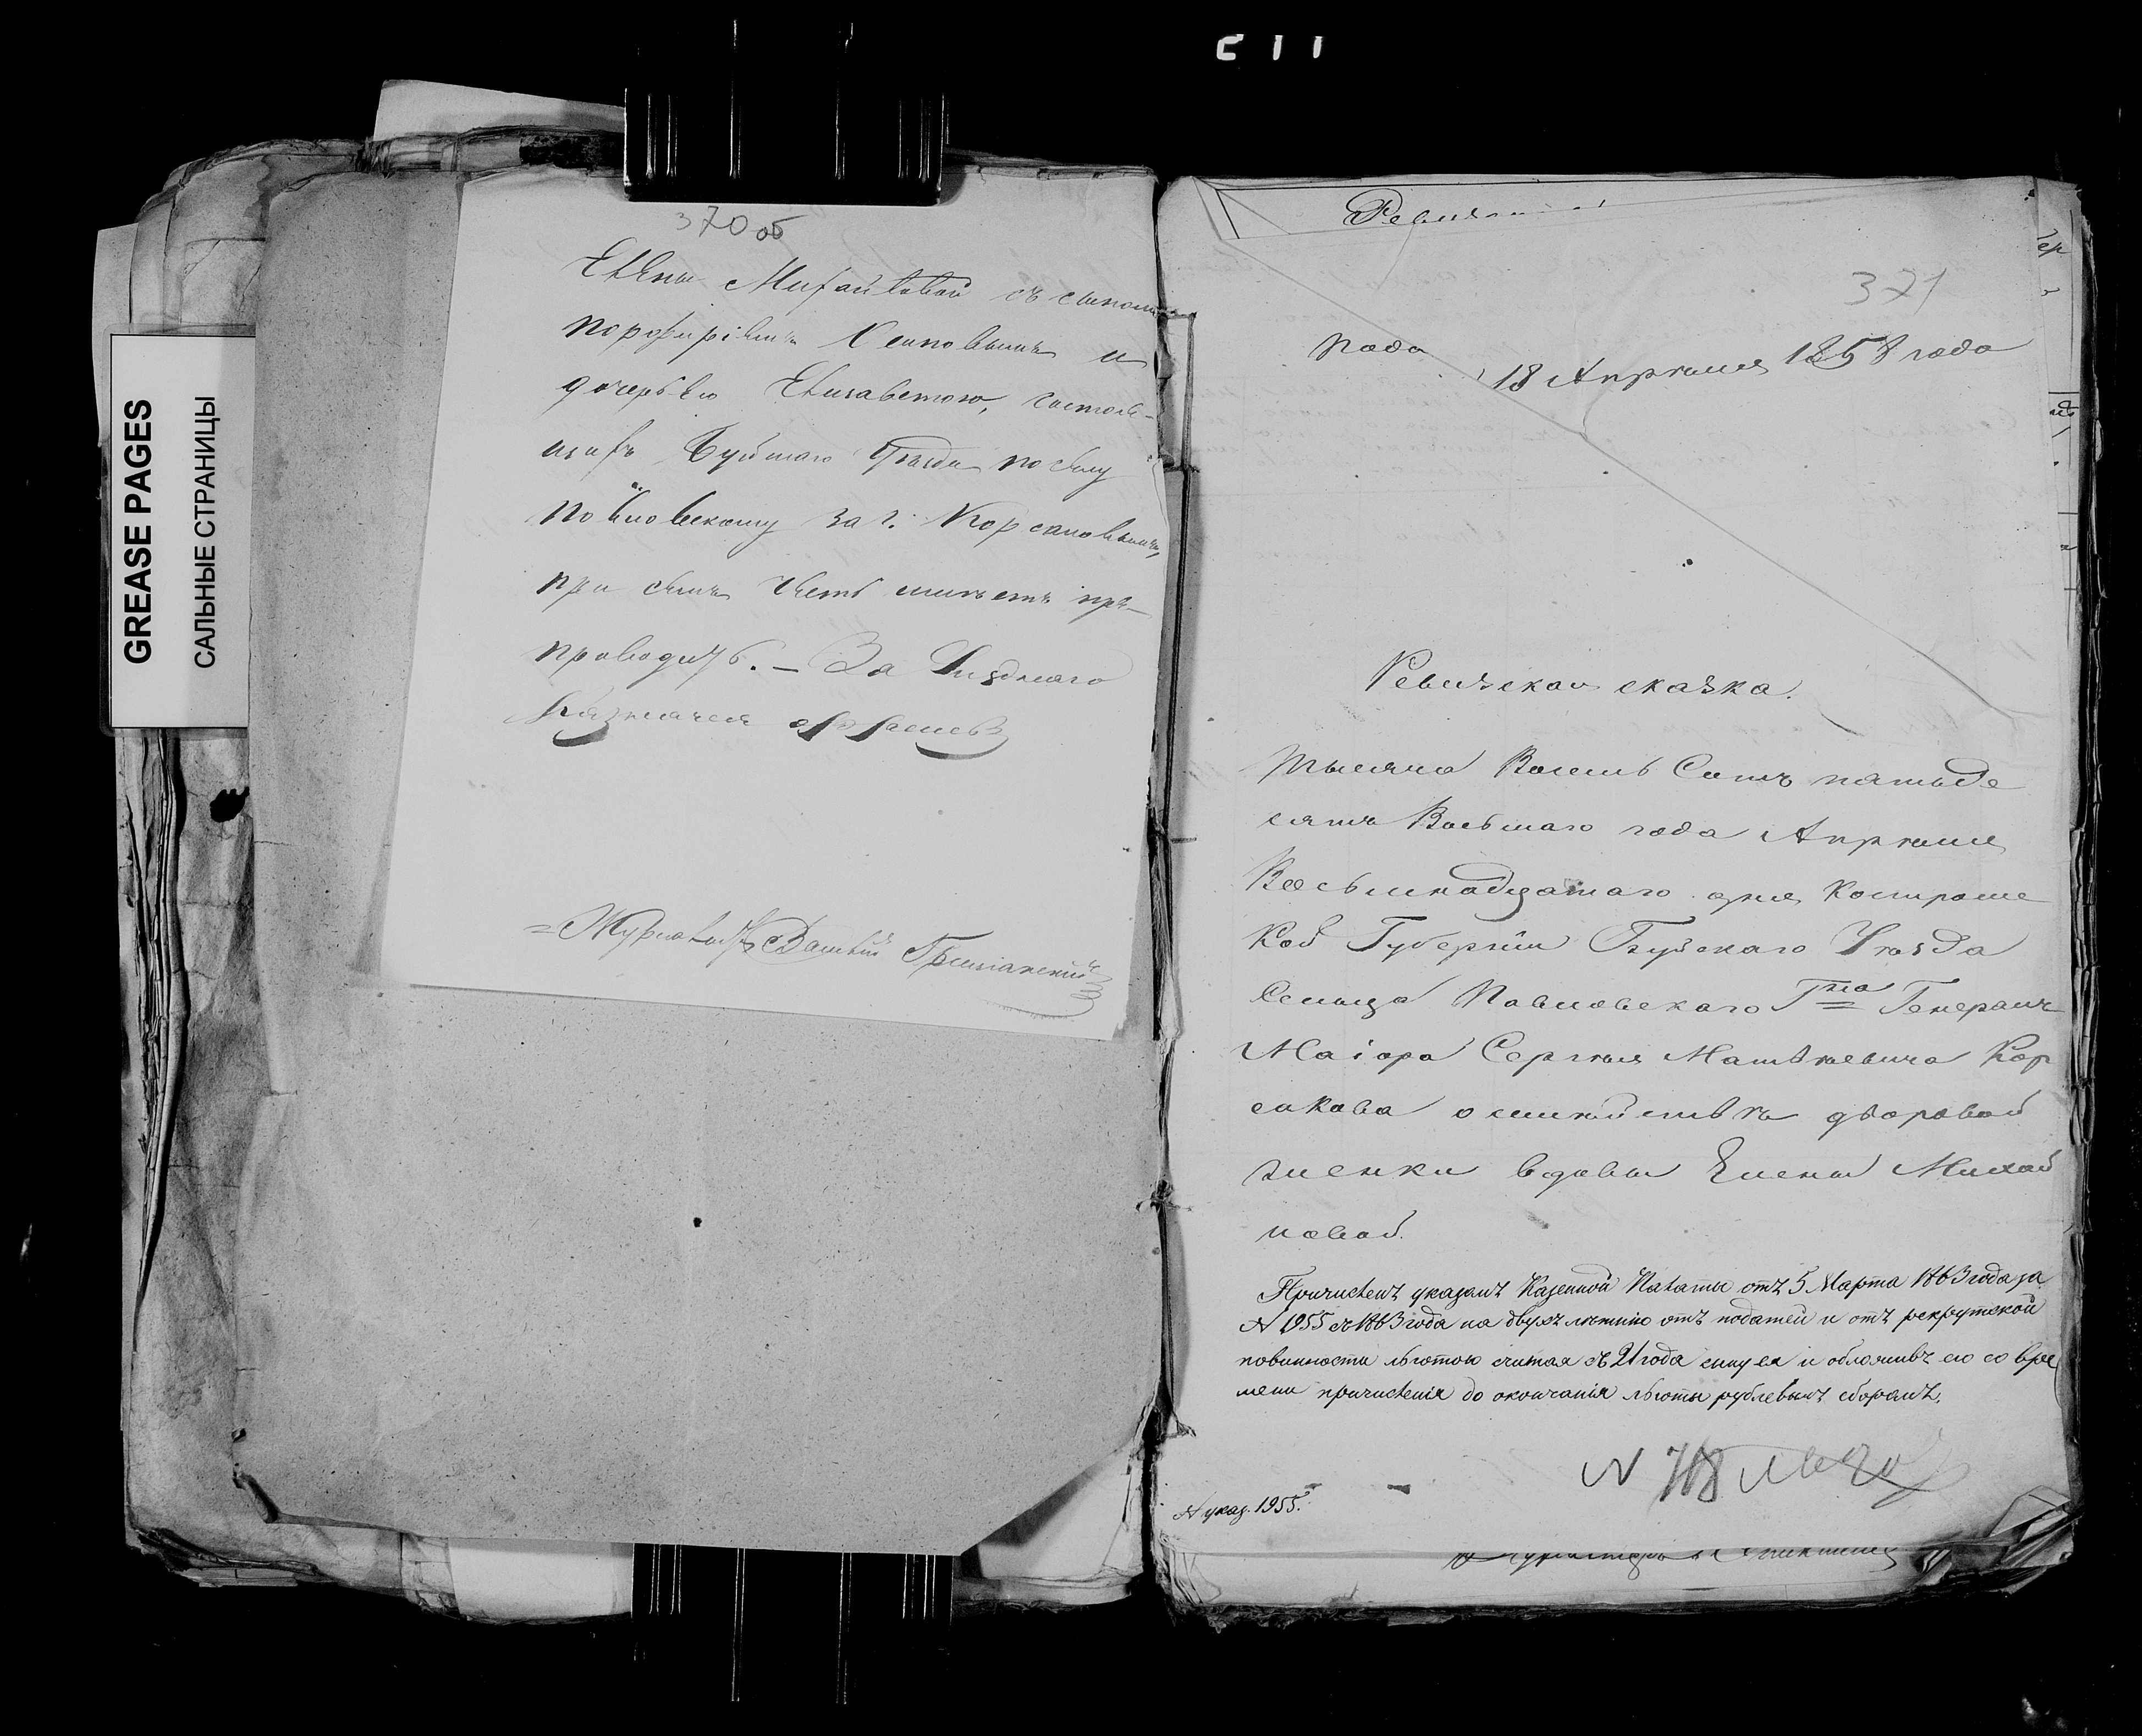 GREASE PAGES
САЛЬНЫЕ СТРАНИЦЫ
370 об
Елены Михайловой съ сыномъ
Порфиріемъ и
дочерью Елизаветою, состоя-
щихъ Буйскаго Уѣзда по селу
Павловскому за г. Корсаковымъ,
при семъ честь имѣетъ пре-
проводить. – За Уѣзднаго
Казначея
371
года
18 Апрѣля 1858 года
Ревизская сказка.
Тысяча Восемь Сотъ пятьде
сятъ Восьмаго года Апрѣля
Восьмнадцатаго дня Костромс
кой Губерніи Буйскаго Уѣзда
Сельца Павловскаго Гна Генералъ
Маіора Сергѣя Матвѣевича Кор
сакова о семействѣ дворовой
женки вдовы Елены Михай
ловой.
Причисленъ указомъ Казенной Палаты отъ 5 Марта 1863 года за
N 1955 съ 1863 года на двухъ лѣтнію отъ податей и отъ рекрутской
повинности льготою считая съ 21 года сыну ея и обложивъ его со вре
мени причисленія до окончанія льготы рублевымъ сборомъ.
N указ. 1955.